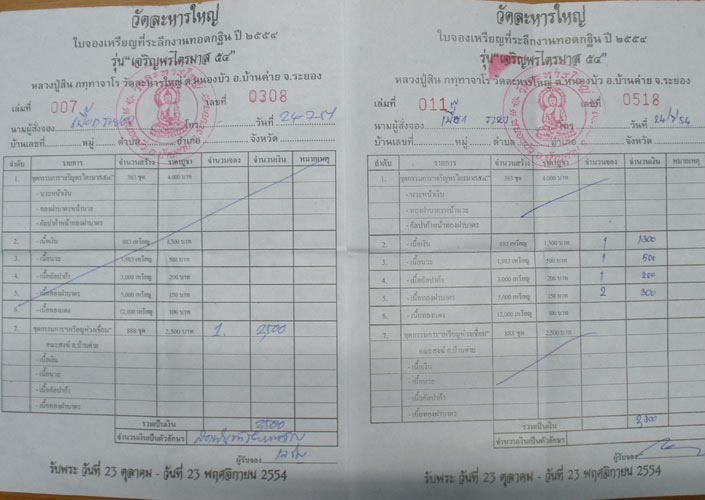 วัดละหารใหญ่
ใบจองเหรียญที่ระลึกงานทอดกฐิน ปี ๒๕๕๔
รุ่น"เจริญพรไตรมาส ๕๔"
หลวงปู่สิน ภทฺทาจาโร วัดละหารใหญ่ ต.หนองบัว อ.บ้านค่าย จ.ระยอง
เล่มที่ 007 เลขที่ 0308
นามผู้สั่งจอง โทร วันที่
บ้านเลขที่ หมู่ ตำบล อำเภอ จังหวัด
ลำดับ รายการ จำนวนสร้าง ราคาบูชา จำนวนจอง จำนวนเงิน หมายเหตุ
1. ชุดกรรมการ"เจริญพรไตรมาส๕๔" 393 ชุด 4,000 บาท
- นวะหน้าเงิน
- ทองฝาบาตรหน้านวะ
- อัลปาก้าหน้าทองฝาบาตร
2. - เนื้อเงิน 883 เหรียญ 1,300 บาท
3. - เนื้อนวะ 1,983 เหรียญ 500 บาท
4. - เนื้ออัลปาก้า 3,000 เหรียญ 200 บาท
5. - เนื้อทองฝาบาตร 5,000 เหรียญ 150 บาท
6. - เนื้อทองแดง 12,000 เหรียญ 100 บาท
7. ชุดกรรมการ"เหรียญห่วงเชื่อม" 888 ชุด 2,500 บาท 1. 2,500
คณะสงฆ์ อ.บ้านค่าย
- เนื้อเงิน
- เนื้อนวะ
- เนื้ออัลปาก้า
- เนื้อทองฝาบาตร
รวมเป็นเงิน 2500
จำนวนเงินเป็นตัวอักษร
ผู้รับจอง
รับพระ วันที่ 23 ตุลาคม - วันที่ 23 พฤศจิกายน 2554
วัดละหารใหญ่
ใบจองเหรียญที่ระลึกงานทอดกฐิน ปี ๒๕๕๔
รุ่น"เจริญพรไตรมาส ๕๔"
หลวงปู่สิน ภทฺทาจาโร วัดละหารใหญ่ ต.หนองบัว อ.บ้านค่าย จ.ระยอง
เล่มที่ 011 เลขที่ 0518
นามผู้สั่งจอง โทร วันที่
บ้านเลขที่ หมู่ ตำบล อำเภอ จังหวัด
ลำดับ รายการ จำนวนสร้าง ราคาบูชา จำนวนจอง จำนวนเงิน หมายเหตุ
1. ชุดกรรมการ"เจริญพรไตรมาส๕๔" 393 ชุด 4,000 บาท
- นวะหน้าเงิน
- ทองฝาบาตรหน้านวะ
- อัลปาก้าหน้าทองฝาบาตร
2. - เนื้อเงิน 883 เหรียญ 1,300 บาท 1 1300
3. - เนื้อนวะ 1,983 เหรียญ 500 บาท 1 500
4. - เนื้ออัลปาก้า 3,000 เหรียญ 200 บาท 1 200
5. - เนื้อทองฝาบาตร 5,000 เหรียญ 150 บาท 2 300
6. - เนื้อทองแดง 12,000 เหรียญ 100 บาท
7. ชุดกรรมการ"เหรียญห่วงเชื่อม" 888 ชุด 2,500 บาท
คณะสงฆ์ อ.บ้านค่าย
- เนื้อเงิน
- เนื้อนวะ
- เนื้ออัลปาก้า
- เนื้อทองฝาบาตร
รวมเป็นเงิน 2,300
จำนวนเงินเป็นตัวอักษร
ผู้รับจอง
รับพระ วันที่ 23 ตุลาคม - วันที่ 23 พฤศจิกายน 2554